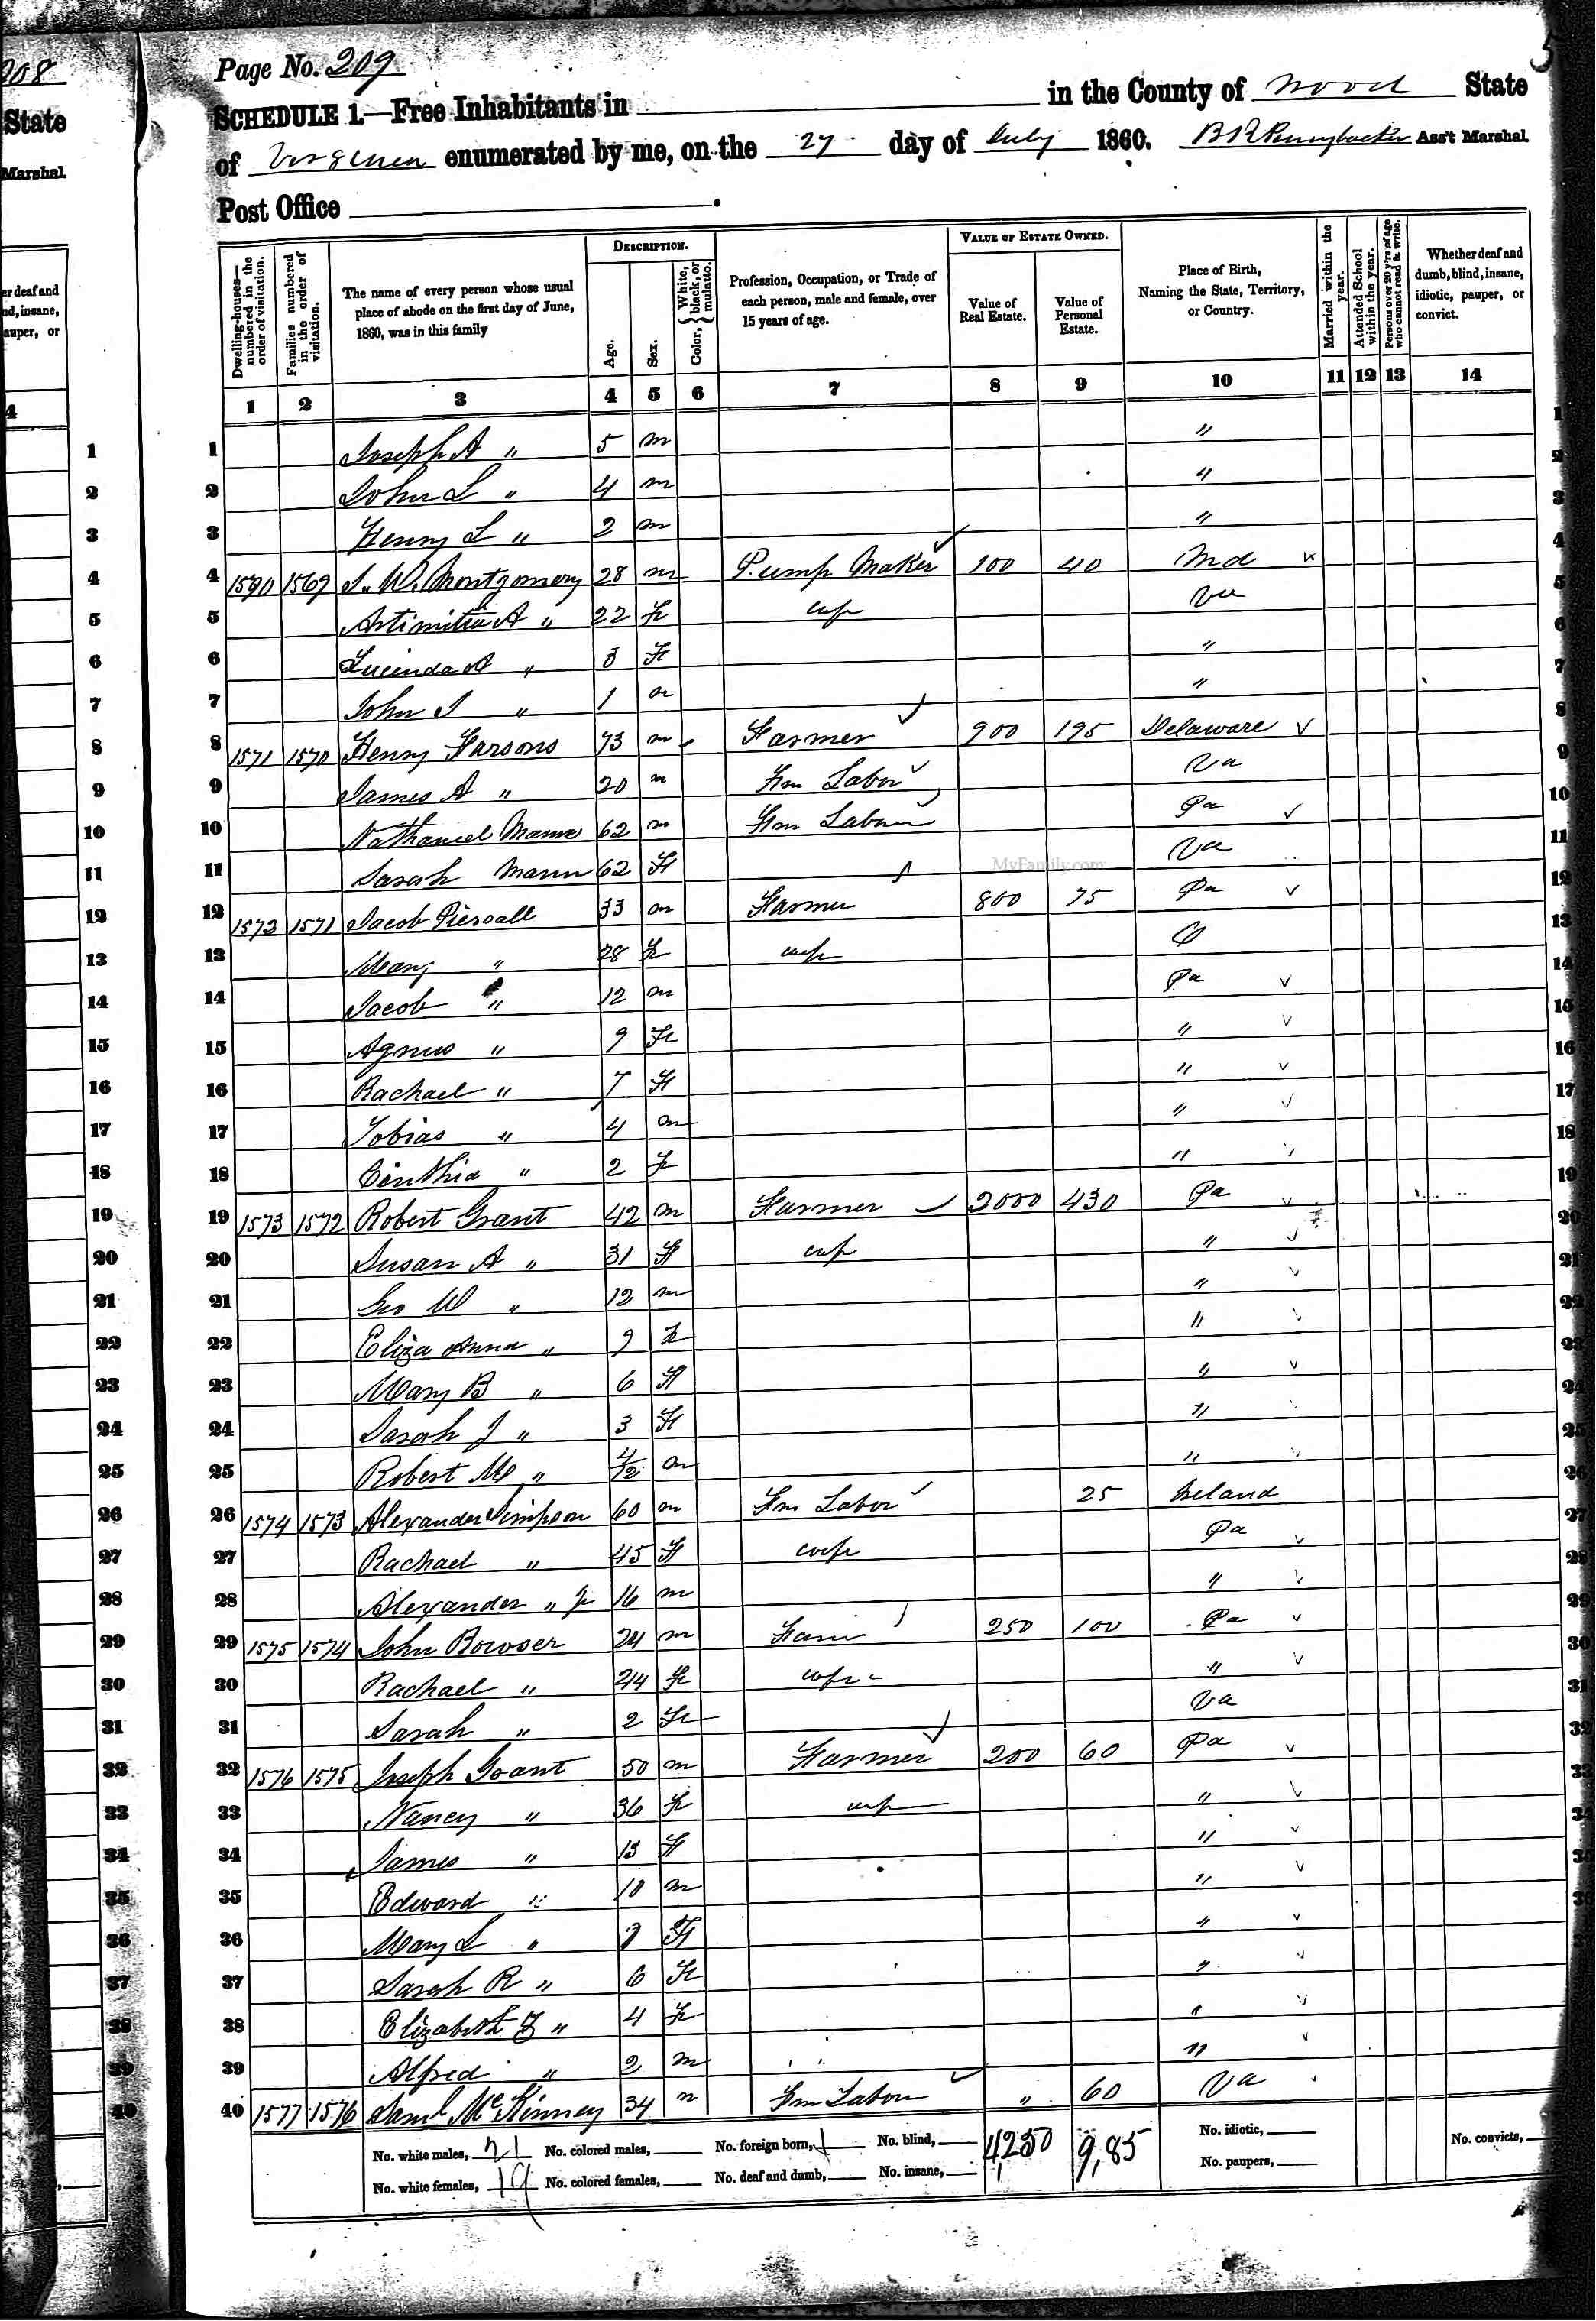 Page No. 209
SCHEDULE 1.—Free Inhabitants in in the County of Wood State
of Virginia enumerated by me, on the 27 day of July 1860. B R Pennybacker Ass't Marshal.
Post Office
Dwelling-houses—numbered in the order of visitation. Families numbered in the order of visitation. The name of every person whose usual place of abode on the first day of June, 1860, was in this family DESCRIPTION. Age. Sex. Color, {White, black, or mulatto. Profession, Occupation, or Trade of each person, male and female, over 15 years of age. VALUE OF ESTATE OWNED. Value of Real Estate. Value of Personal Estate. Place of Birth, Naming the State, Territory, or Country. Married within the year. Attended School within the year. Persons over 20 y'rs of age who cannot read & write. Whether deaf and dumb, blind, insane, idiotic, pauper, or convict.
1 2 3 4 5 6 7 8 9 10 11 12 13 14
1 Joseph A " 5 m "
2 John L " 4 m "
3 Henry L " 2 m "
4 1590 1569 J. W. Montgomery 28 m Pump Maker 100 40 Md
5 Artimitia A " 22 F wife Va
6 Lucinda A " 3 F "
7 John J " 1 m "
8 1571 1570 Henry Parsons 73 m Farmer 900 195 Delaware
9 James A " 20 m Fm Labor Va
10 Nathaniel Mann 62 m Fm Labour Pa
11 Sarah Mann 62 F Va
12 1572 1571 Jacob Piersall 33 m Farmer 800 75 Pa
13 Mary " 28 F wife O
14 Jacob " 12 m Pa
15 Agnus " 9 F "
16 Rachael " 7 F "
17 Tobias " 4 m "
18 Cinthia " 2 F "
19 1573 1572 Robert Grant 42 m Farmer 2000 430 Pa
20 Susan A " 31 F wife "
21 Geo W " 12 m "
22 Eliza Anna " 9 F "
23 Mary B " 6 F "
24 Sarah J " 3 F "
25 Robert Mc " 4/12 m "
26 1574 1573 Alexander Simpson 60 m Fm Labor 25 Ireland
27 Rachael " 45 F wife Pa
28 Alexander " Jr 16 m "
29 1575 1574 John Bowser 24 m Farm 250 100 Pa
30 Rachael " 24 F wife "
31 Sarah " 2 F Va
32 1576 1575 Joseph Grant 50 m Farmer 200 60 Pa
33 Nancy " 36 F wife "
34 James " 13 F "
35 Edward " 10 m "
36 Mary L " F "
37 Sarah R " 6 F "
38 Elizabeth Z " 4 F "
39 Alfred " 2 m "
40 1577 1576 Saml McKinney 34 m Fm Labour " 60 Va
No. white males, 21 No. colored males, No. foreign born, 1 No. blind, 4250 9,85 No. idiotic, No. convicts,
No. white females, 19 No. colored females, No. deaf and dumb, No. insane, No. paupers,
MyFamily.com
208
State
Marshal.